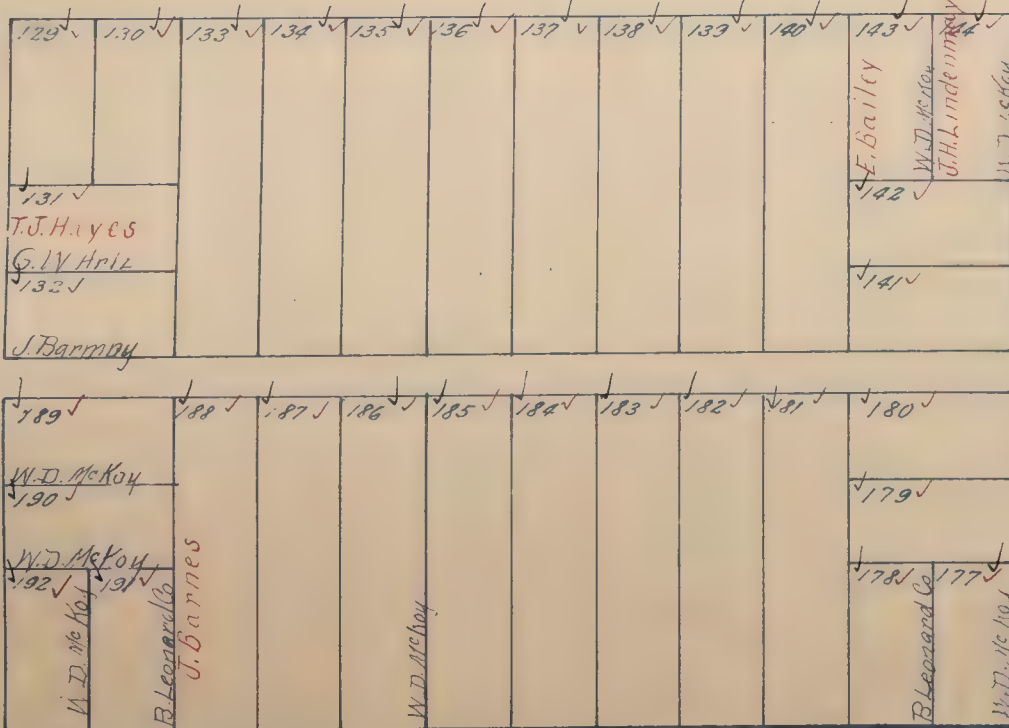 129 130 133 134 135 136 137 138 139 140 143 144
E. Bailey
W.D. McKoy
J.H. Lindenmay
131
T.J. Hayes
132
J. Barmby
142
141
189 188 187 186 185 184 183 182 181 180
W.D. McKoy
190
179
W.D. McKoy
192 191 178 177
W.D. McKoy
B. Leonard Co
J. Barnes
W.D. McKoy
B Leonard Co
W.D. McKoy